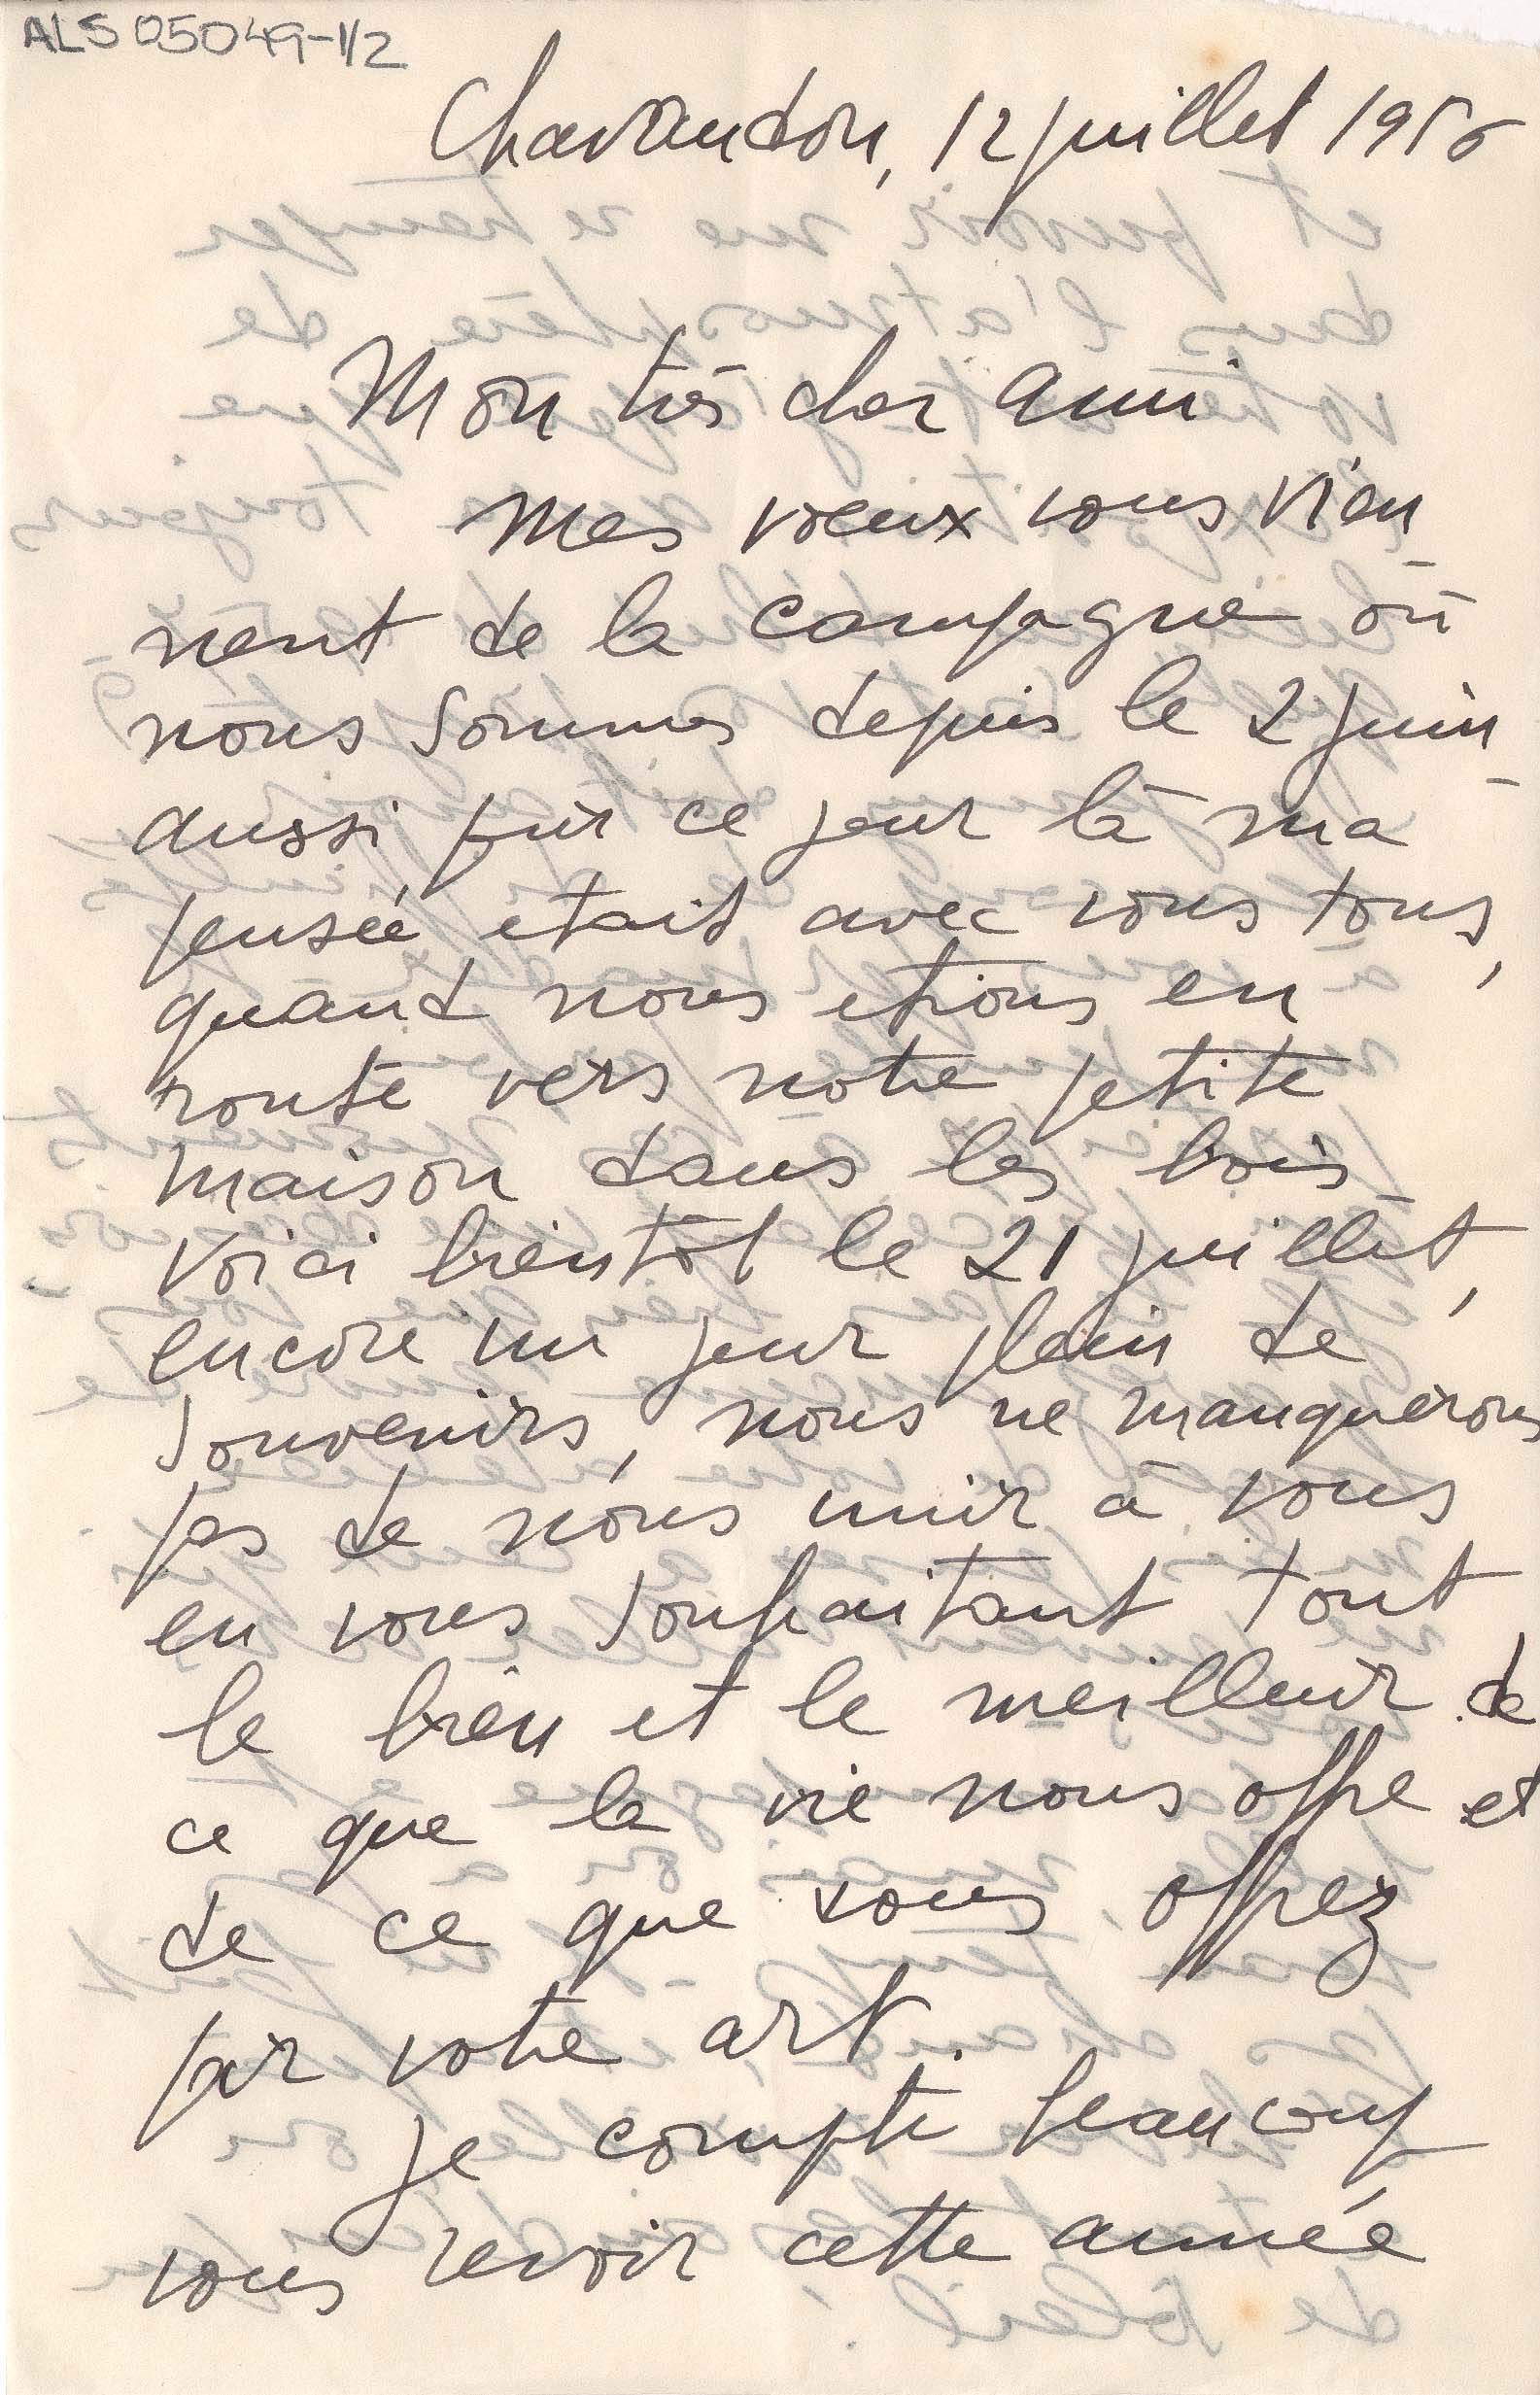 ALS 05049-1/2
Chavaudon, 12 juillet 1956
Mon très cher ami
Mes voeux vous vien
nent de la campagne où
nous sommes depuis le 2 juin
aussi pour ce jour là ma
pensée etait avec vous tous,
quand nous etions en
route vers notre petite
maison dans les bois
Voici bientôt le 21 juillet,
encore un jour plein de
souvenirs, nous ne manquerons
pas de nous unir à vous
en vous souhaitant tout
le bien et le meilleur de
ce que la vie nous offre et
de ce que vous offrez
par votre art.
Je compte beaucoup
vous revoir cette année